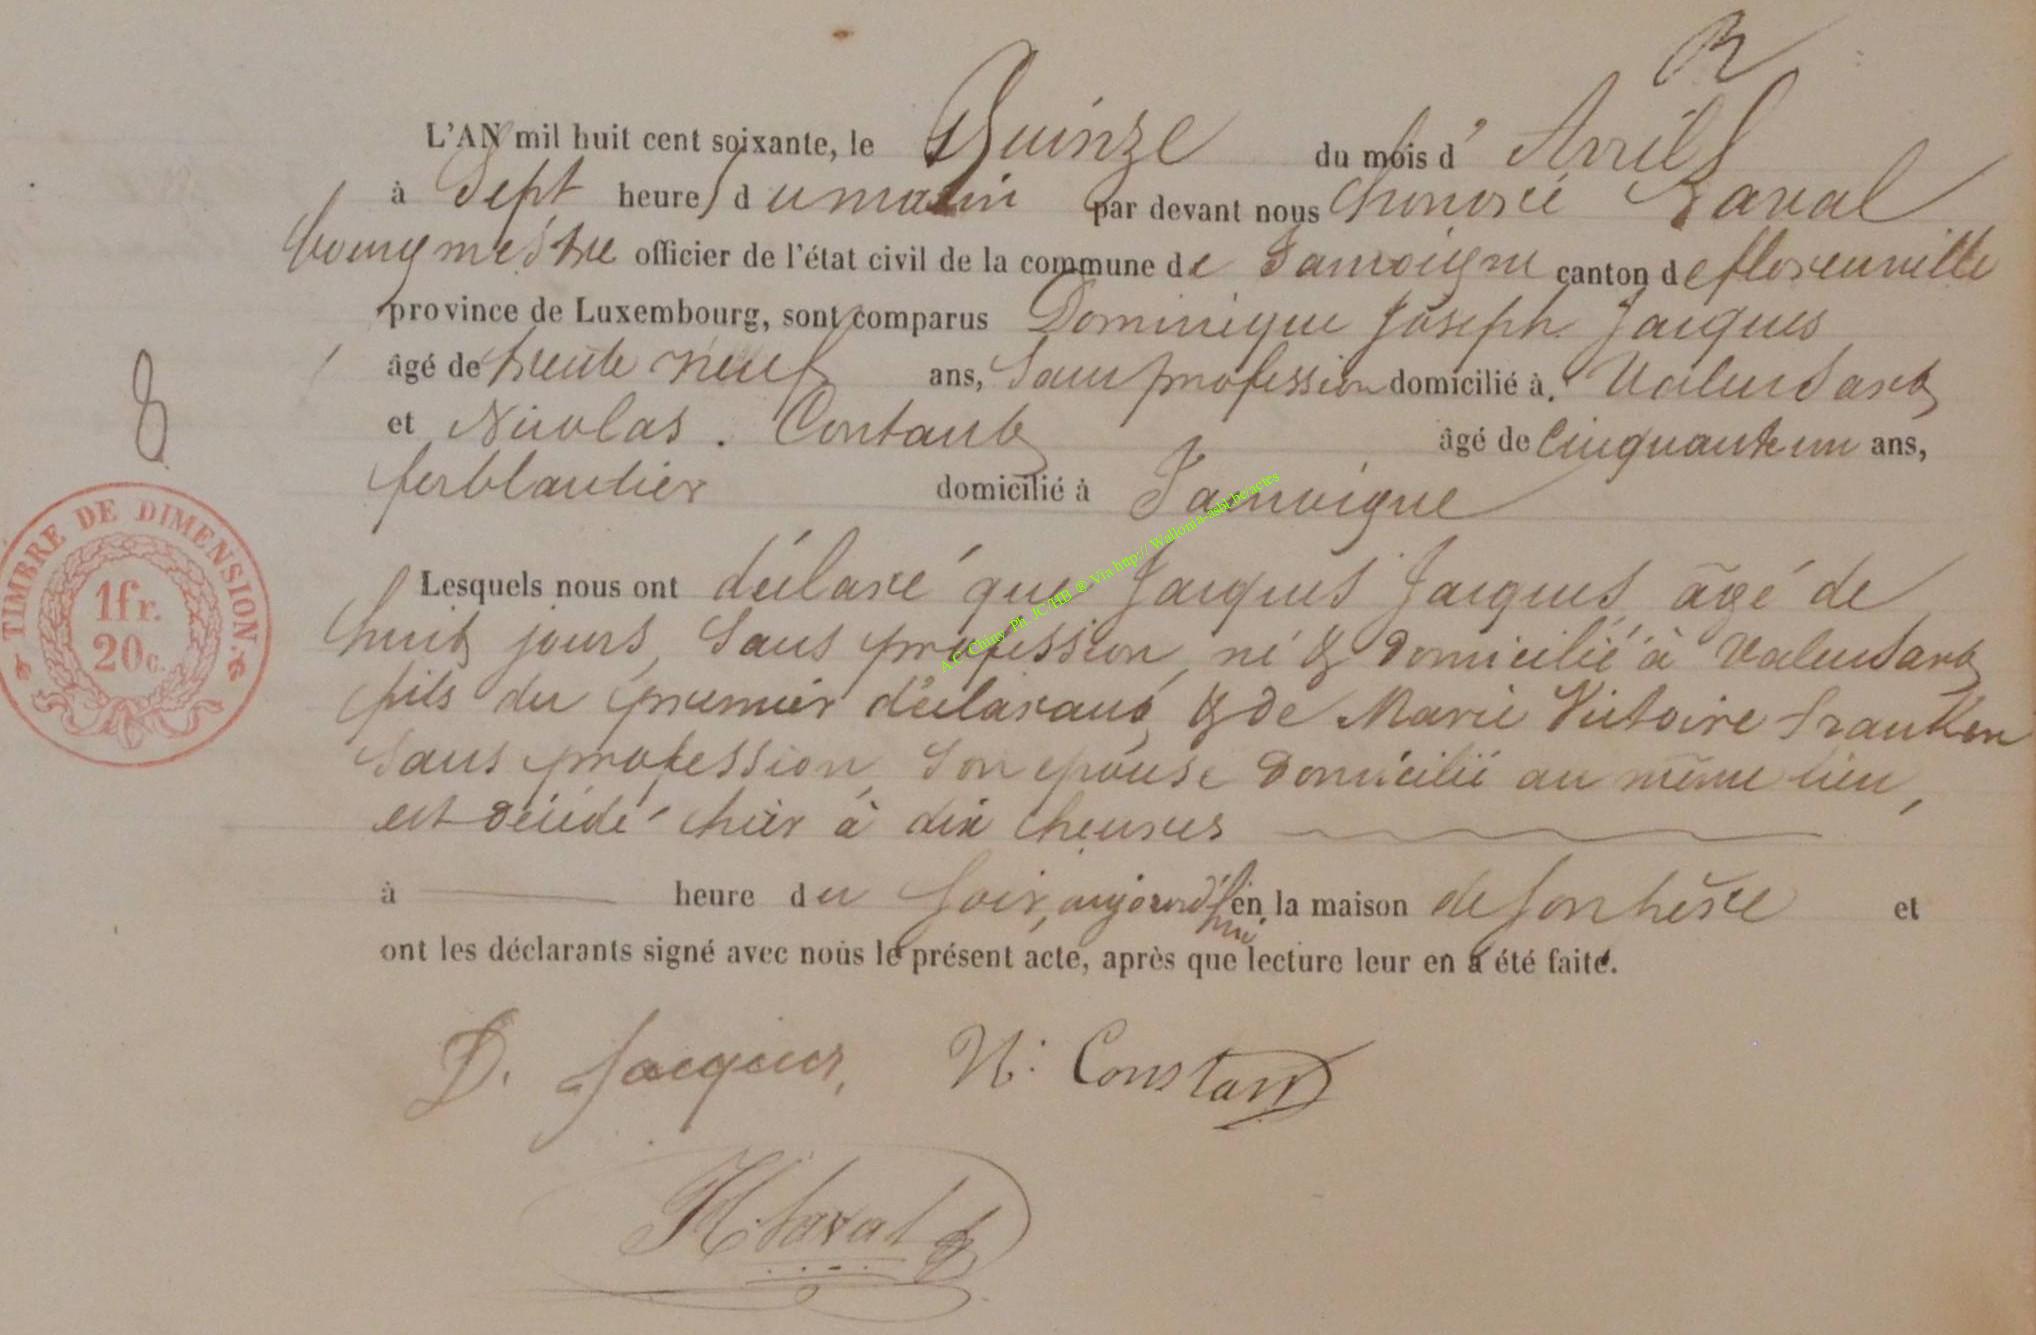 R
L'AN mil huit cent soixante, le Quinze du mois d' Avril
à Sept heures du matin par devant nous honoré Laval
bourgmestre officier de l'état civil de la commune de Jamoigne canton de florenville
province de Luxembourg, sont comparus Dominique Joseph Jacques
âgé de trente neuf ans, Sans profession domicilié à Valensart
et Nicolas Contant âgé de Cinquante un ans,
ferblantier domicilié à Jamoigne
8
TIMBRE DE DIMENSION.
1fr.
20c.
Lesquels nous ont déclaré que Jacques Jacques âgé de
huit jours, Sans profession, né & Domicilié à Valensart
fils du premier déclarant, & de Marie Victoire
Sans profession, Son épouse Domicilié au même lieu,
est décédé hier à dix heures
à heure du Soir, aujourd'hui en la maison de son père et
ont les déclarants signé avec nous le présent acte, après que lecture leur en a été faite.
D. Jacques, N: Constant
H Laval
A.C Chiny Ph. JC/HB ® Via http:// Wallonia-asbl.be/actes